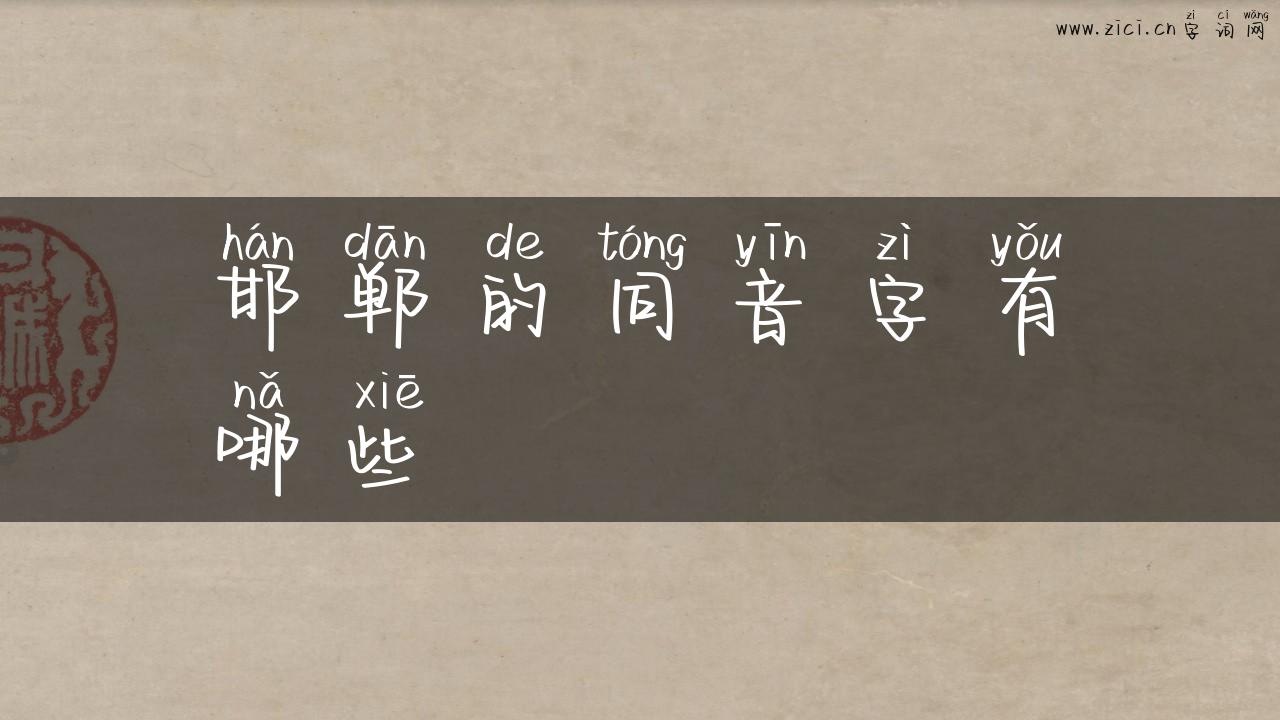 zì cí wǎng
www.zici.cn 字词网
hán dān de tóng yīn zì yǒu
邯郸的同音字有
nǎ xiē
哪些